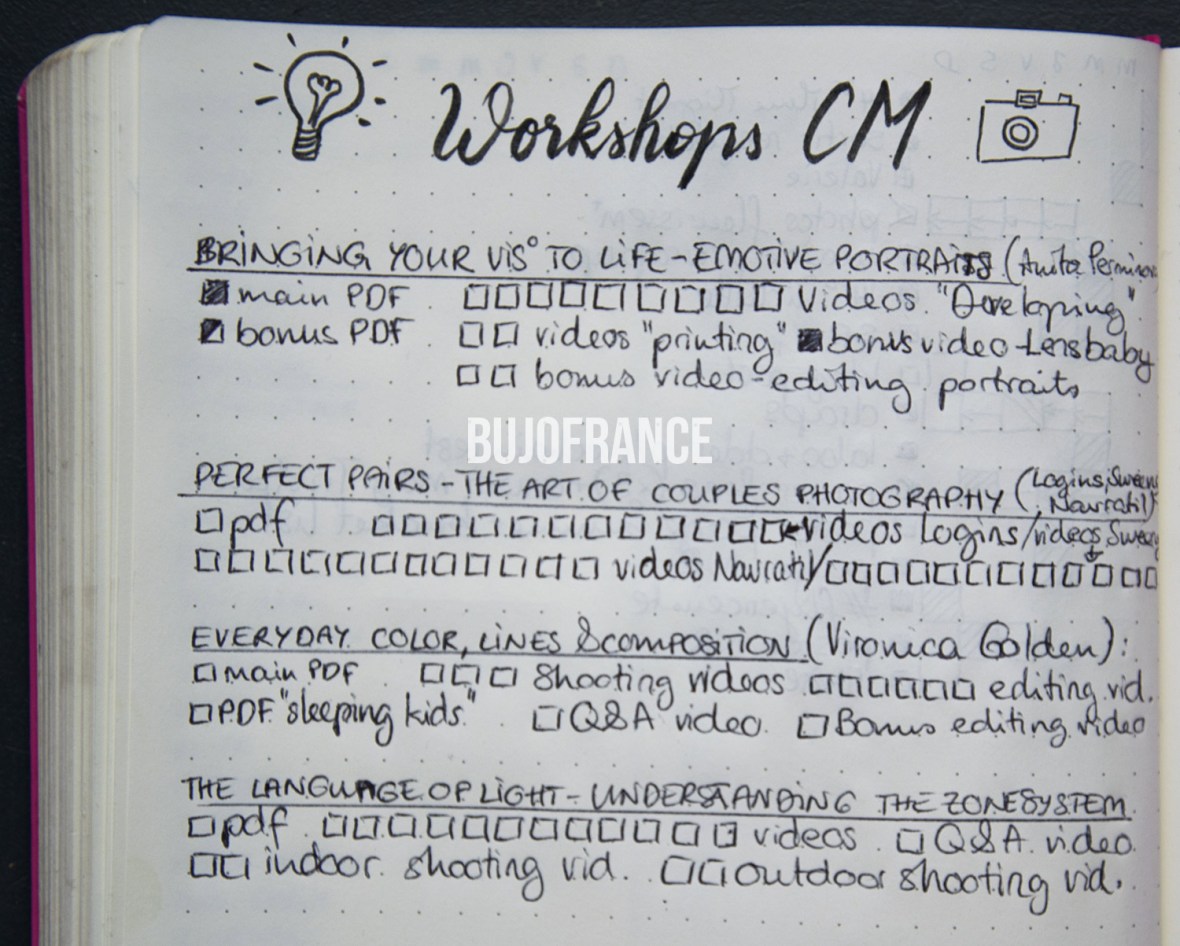 Workshops CM
BRINGING YOUR VIS° TO LIFE - EMOTIVE PORTRAITS (Anita
main PDF □□□□□□□□□ Videos "Developing"
bonus PDF □□ videos "printing" ■ bonus video Lensbaby
□□ bonus video-editing portraits
BUJOFRANCE
PERFECT PAIRS - THE ART OF COUPLES PHOTOGRAPHY (Logins, Sweeny
, Navratil)
□ pdf □□□□□□□□□□□□ videos Logins/videos
□□□□□□□□□□□□ videos Navratil/□□□□□□□□□□□
EVERYDAY COLOR, LINES & COMPOSITION (Vironica Golden):
□ main PDF □□□ Shooting videos □□□□□□ editing vid.
□ PDF "sleeping kids" □ Q&A video. □ Bonus editing video
THE LANGUAGE OF LIGHT - UNDERSTANDING THE ZONE SYSTEM
□ pdf □□□□□□□□□□□□ videos □ Q&A video
□□ indoor shooting vid. □□ outdoor shooting vid.